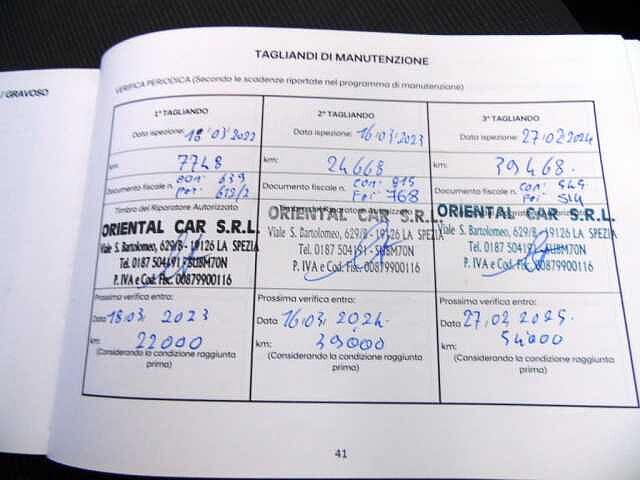 / GRAVOSO
TAGLIANDI DI MANUTENZIONE
VERIFICA PERIODICA (Secondo le scadenze riportate nel programma di manutenzione)
1° TAGLIANDO
Data ispezione: 18/03/2022
km: 7748
Documento fiscale n. con: 639
Per: 612/2
Timbro del Riparatore Autorizzato
ORIENTAL CAR S.R.L.
Viale S. Bartolomeo, 629/B - 19126 LA SPEZIA
Tel. 0187 504191 - SUBM70N
P. IVA e Cod. Fisc. 00879900116
Prossima verifica entro:
Data 18.03 2023
km: 22000
(Considerando la condizione raggiunta
prima)
2° TAGLIANDO
Data ispezione: 16/03/2023
km: 24668
Documento fiscale n. con: 815
Per: 768
Timbro del Riparatore Autorizzato
ORIENTAL CAR S.R.L.
Viale S. Bartolomeo, 629/B - 19126 LA SPEZIA
Tel. 0187 504191 - SUBM70N
P. IVA e Cod. Fisc. 00879900116
Prossima verifica entro:
Data 16.03. 2024.
km: 39000
(Considerando la condizione raggiunta
prima)
3° TAGLIANDO
Data ispezione: 27/02/2024
km: 39468.
Documento fiscale n. con: 549
Per: 514
ORIENTAL CAR S.R.L.
Viale S. Bartolomeo, 629/B - 19126 LA SPEZIA
Tel. 0187 504191 - SUBM70N
P. IVA e Cod. Fisc. 00879900116
Prossima verifica entro:
Data 27.02 2025.
km: 54000
(Considerando la condizione raggiunta
prima)
41